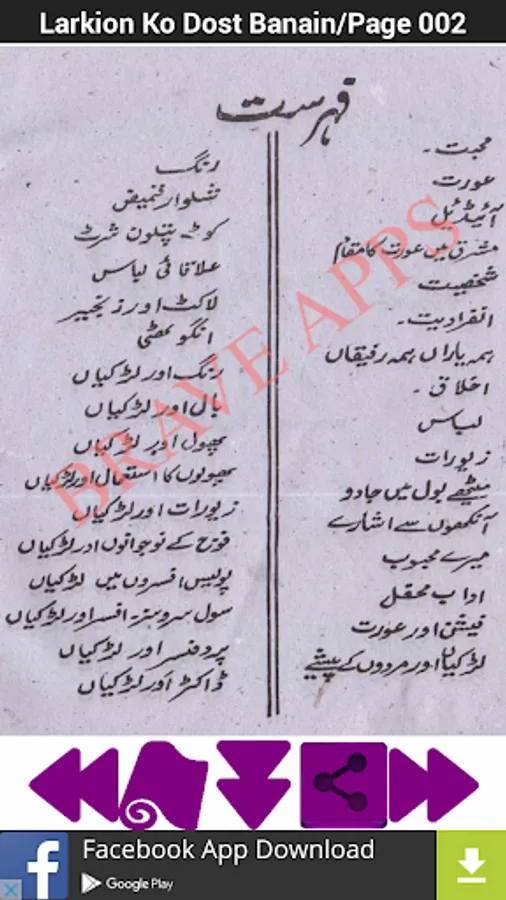 Larkion Ko Dost Banain/Page 002
فہرست
محبت۔
عورت
آئیڈیل
مشرق میں عورت کا مقام
شخصیت
انفرادیت۔
ہمہ یاراں ہمہ رفیقاں
اخلاق۔
لباس
زیورات
میٹھے بول میں جادو
آنکھوں سے اشارے
میرے محبوب
اداب محفل
فیشن اور عورت
لڑکیاں اور مردوں کے پیشے
رنگ
شلوار قمیض
کوٹ پتلون شرٹ
علاقائی لباس
لاکٹ اور زنجیر
انگوٹھی
رنگ اور لڑکیاں
بال اور لڑکیاں
پھول اور لڑکیاں
پھولوں کا استعمال اور لڑکیاں
زیورات اور لڑکیاں
فوج کے نوجوانوں اور لڑکیاں
پولیس افسروں میں لڑکیاں
سول سروسز۔ افسر اور لڑکیاں
پروفیسر اور لڑکیاں
ڈاکٹر اور لڑکیاں
BRAVE APPS
Facebook App Download
Google Play